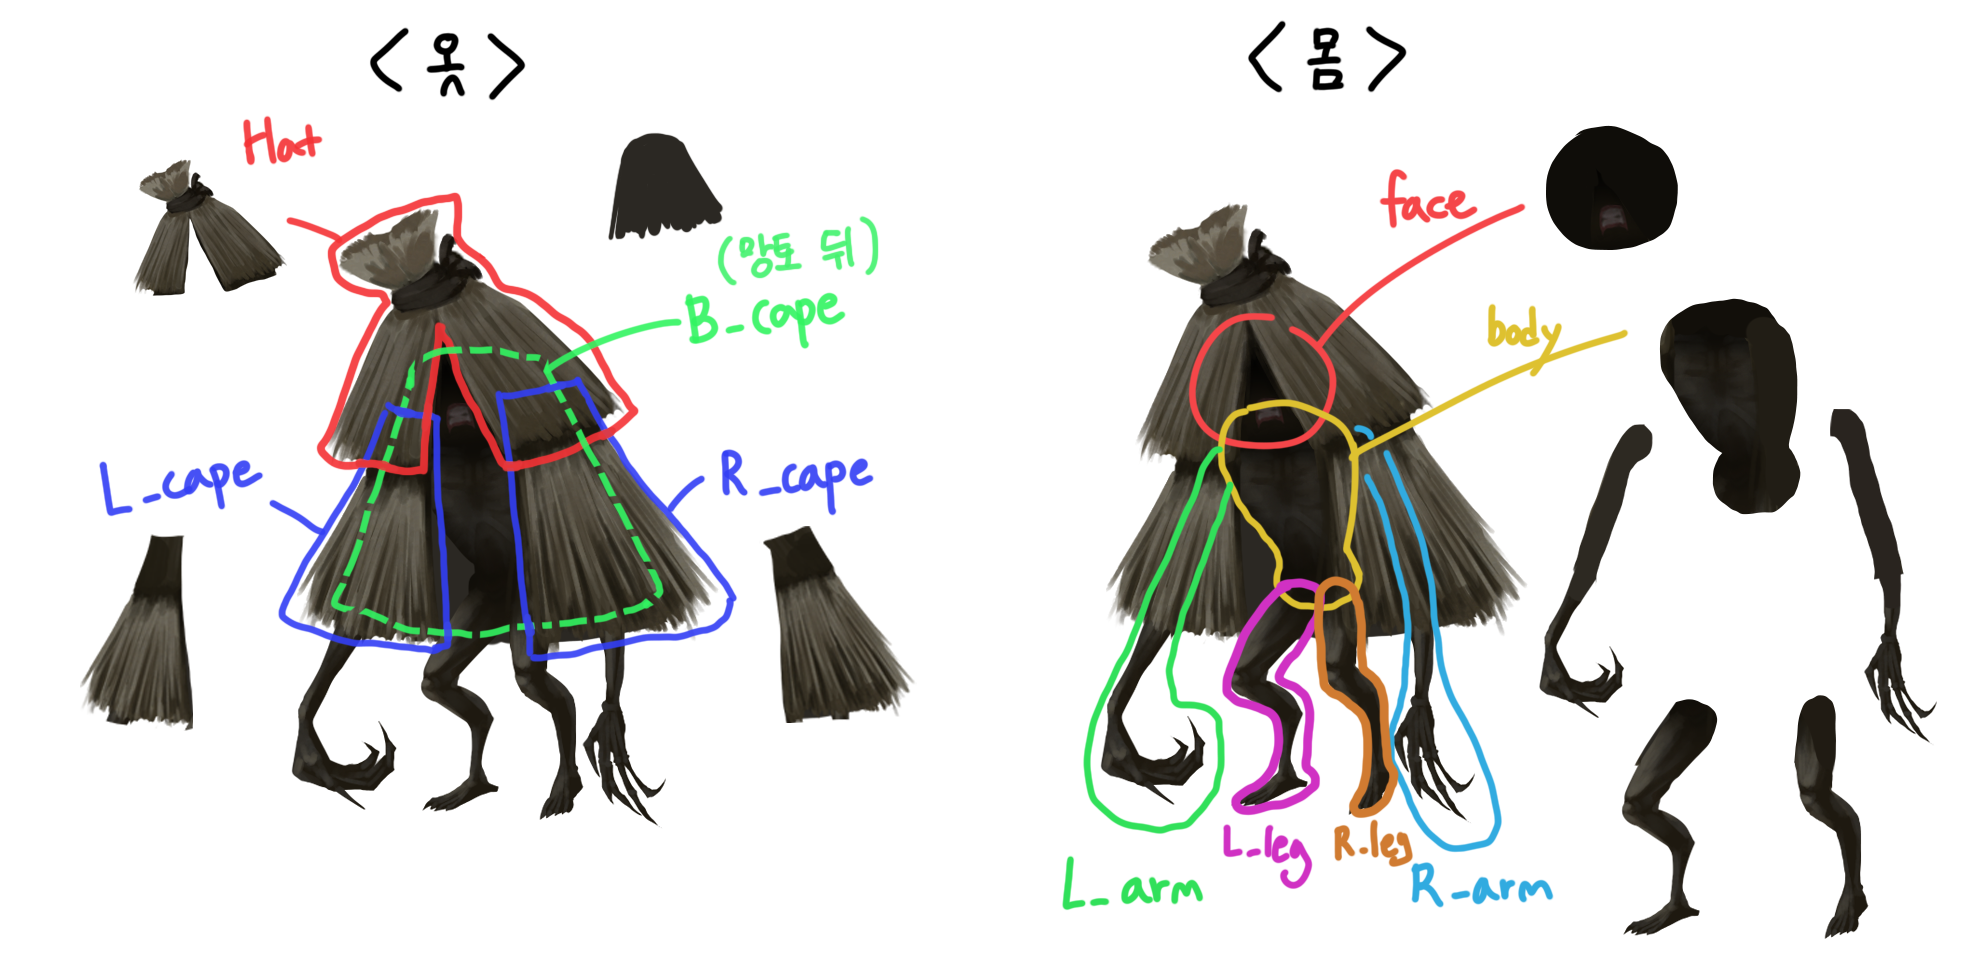 <옷>
Hat
(망토 뒤)
B_cape
L_cape
R_cape
<몸>
face
body
L_leg
R_leg
L_arm
R_arm